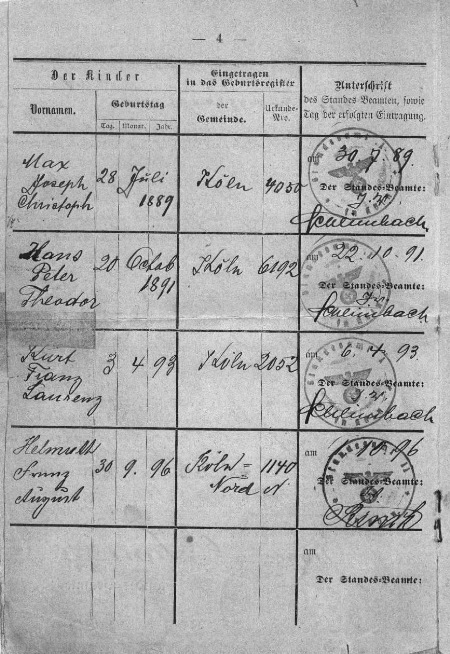 — 4 —
Der Kinder
Eingetragen
in das Geburtsregister
Unterschrift
des Standes Beamten, sowie
Tag der erfolgten Eintragung.
Vornamen.
Geburtstag
der
Gemeinde.
Urkunde-
Nro.
Tag. Monat. Jahr.
Max
Joseph
Christoph
28 Juli
1889
Köln
4050
am 30. 7. 89.
Der Standes-Beamte:
J.V.
Hans
Peter
Theodor
20 Octob
1891
Köln
6192
am 22. 10. 91.
Der Standes-Beamte:
J.V.
Kurt
Franz
Laurenz
3 4 93
Köln
2052
am 6. 4. 93.
Der Standes-Beamte:
J.V.
Helmuth
Franz
August
30 9. 96
Köln =
Nord
1140
am 10 96
Der Standes-Beamte:
am
Der Standes-Beamte: